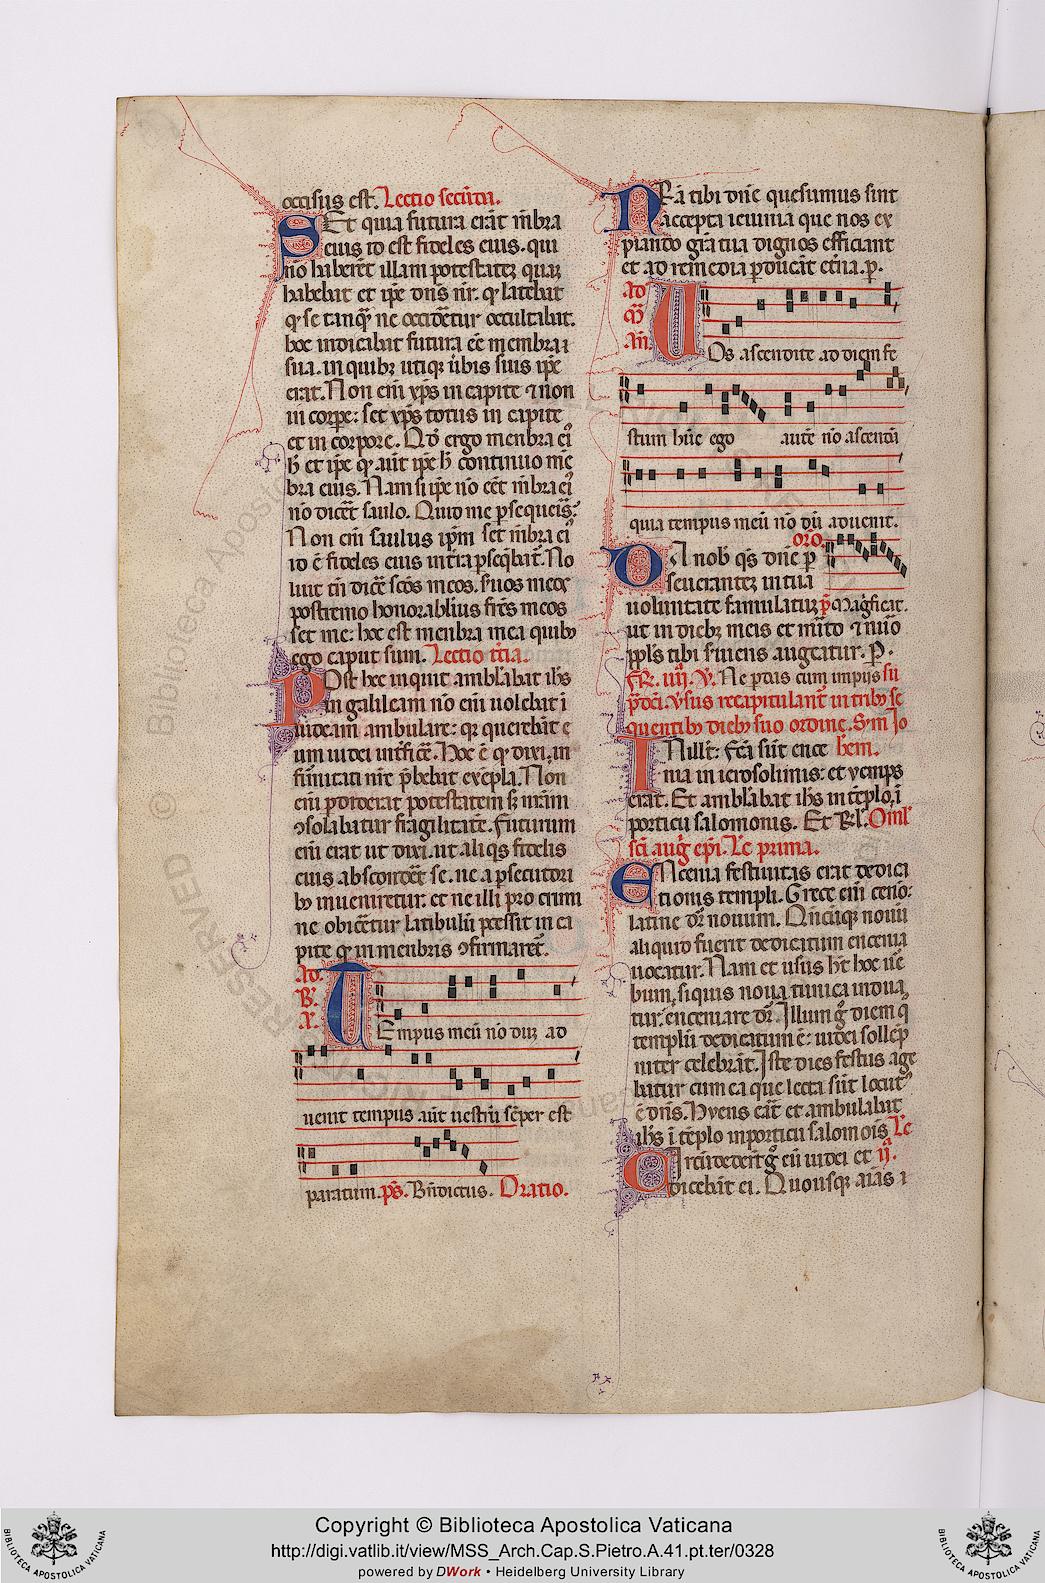 occisus est. Lectio secūda.
Et quia futura erāt mēbra
eius id est fideles eius. qui
nō haberēt illam potestatez quaz
habebat et ip̄e dn̄s nr̄. q̄ latebat
q̄ se tanq̄ ne occideretur occultabat.
hoc indicabat futura eē membra
sua. in quibz utiqz mēbris suis ip̄e
erat. Non enī xp̄s in capite ⁊ non
in corpe: set xp̄s totus in capite
et in corpore. Qd̄ ergo menbra eiꝰ
h̄ et ip̄e q̄ aut̄ ip̄e h̄ continuo mē
bra eius. Nam si ip̄e nō eēt mēbra eiꝰ
nō dicēt saulo. Quid me p̄sequeris?
Non enī saulus ip̄m set mēbra eiꝰ
id ē fideles eius in t̄ra p̄seq̄bat̄. No
luit tn̄ dicē sc̄os meos. s̄uos meos
postremo honorabilius fr̄es meos
set me: hoc est menbra mea quibꝰ
ego caput sum. Lectio t̄cia.
Post hec inquit amblābat ih̄s
in galileam nō enī uolebat ī
iudeam ambulare: qz querebāt e
um iudei int̄ficē. Hoc ē q̄ dixi. in
firmitati nr̄e p̄bebat exēpla. Non
enī perdiderat potestatem sz nr̄am
ꝯsolabatur fragilitatē. Futurum
enī erat ut dixi. ut aliq̄s fidelis
eius absconderēt se. ne a p̄secutori
bꝰ inueniretur. et ne illi pro crimi
ne obicēetur latibulū p̄cessit in ca
pite q̄ in menbris ꝯfirmaret̄.
Ad. B. A.
Tempus meū nō duz ad
uenit tempus aut̄ uestrū sēper est
paratum. ps̄. Bn̄dictus. Oratio.
Nr̄a tibi dn̄e quesumus sint
accepta ieiunia que nos ex
piando gr̄a tua dignos efficiant
et ad remedia p̄ducāt etn̄a. p.
ad m̄ an̄.
Vos ascendite ad diem fe
stum hūc ego autē nō ascendā
quia tempus meū nō dū aduenit.
orō.
Da nob̄ qs̄ dn̄e p̄
seuerantez in tua
uoluntate famulatuz p̄ Magn̄ficat.
ut in diebz meis et m̄ito ⁊ nūo
ppl̄s tibi s̄uiens augeatur. P.
Fr̄. iiij. V̄. Ne p̄das cum impijs sū
p̄dc̄i. v̄sus recapitulant̄ in tribꝰ se
quentibꝰ diebꝰ suo ordine. S̄m Jo
In illo t̄: Fc̄a sūt ence hem.
nia in ierosolimis: et yemps
erat. Et amblābat ih̄s in tēplo ī
porticu salomonis. Et Rl̄. Oml̄
sc̄i auḡ ep̄i. Le prima.
Encenia festiuitas erat dedica
tionis templi. Grece enī ceno:
latine dr̄ nouum. Qn̄cūqz nouū
aliquid fuerit dedicatum encenia
uocatur. Nam et usus h̄t hoc uē
bum. si quis noua tunica induat
tur. enceniare dr̄. Illum ḡ diem q̄
templū dedicatum ē: iudei sollep̄
niter celebrāt. Iste dies festus age
batur cum ea que lecta sūt locutꝰ
ē dn̄s. Hyens erāt et ambulabat
ih̄s ī tēplo in porticu salomōis. Le
Circūdederūt ḡ eū iudei et ij.
dicebāt ei. Quousqz aīas ⁊
Copyright © Biblioteca Apostolica Vaticana
http://digi.vatlib.it/view/MSS_Arch.Cap.S.Pietro.A.41.pt.ter/0328
powered by DWork • Heidelberg University Library